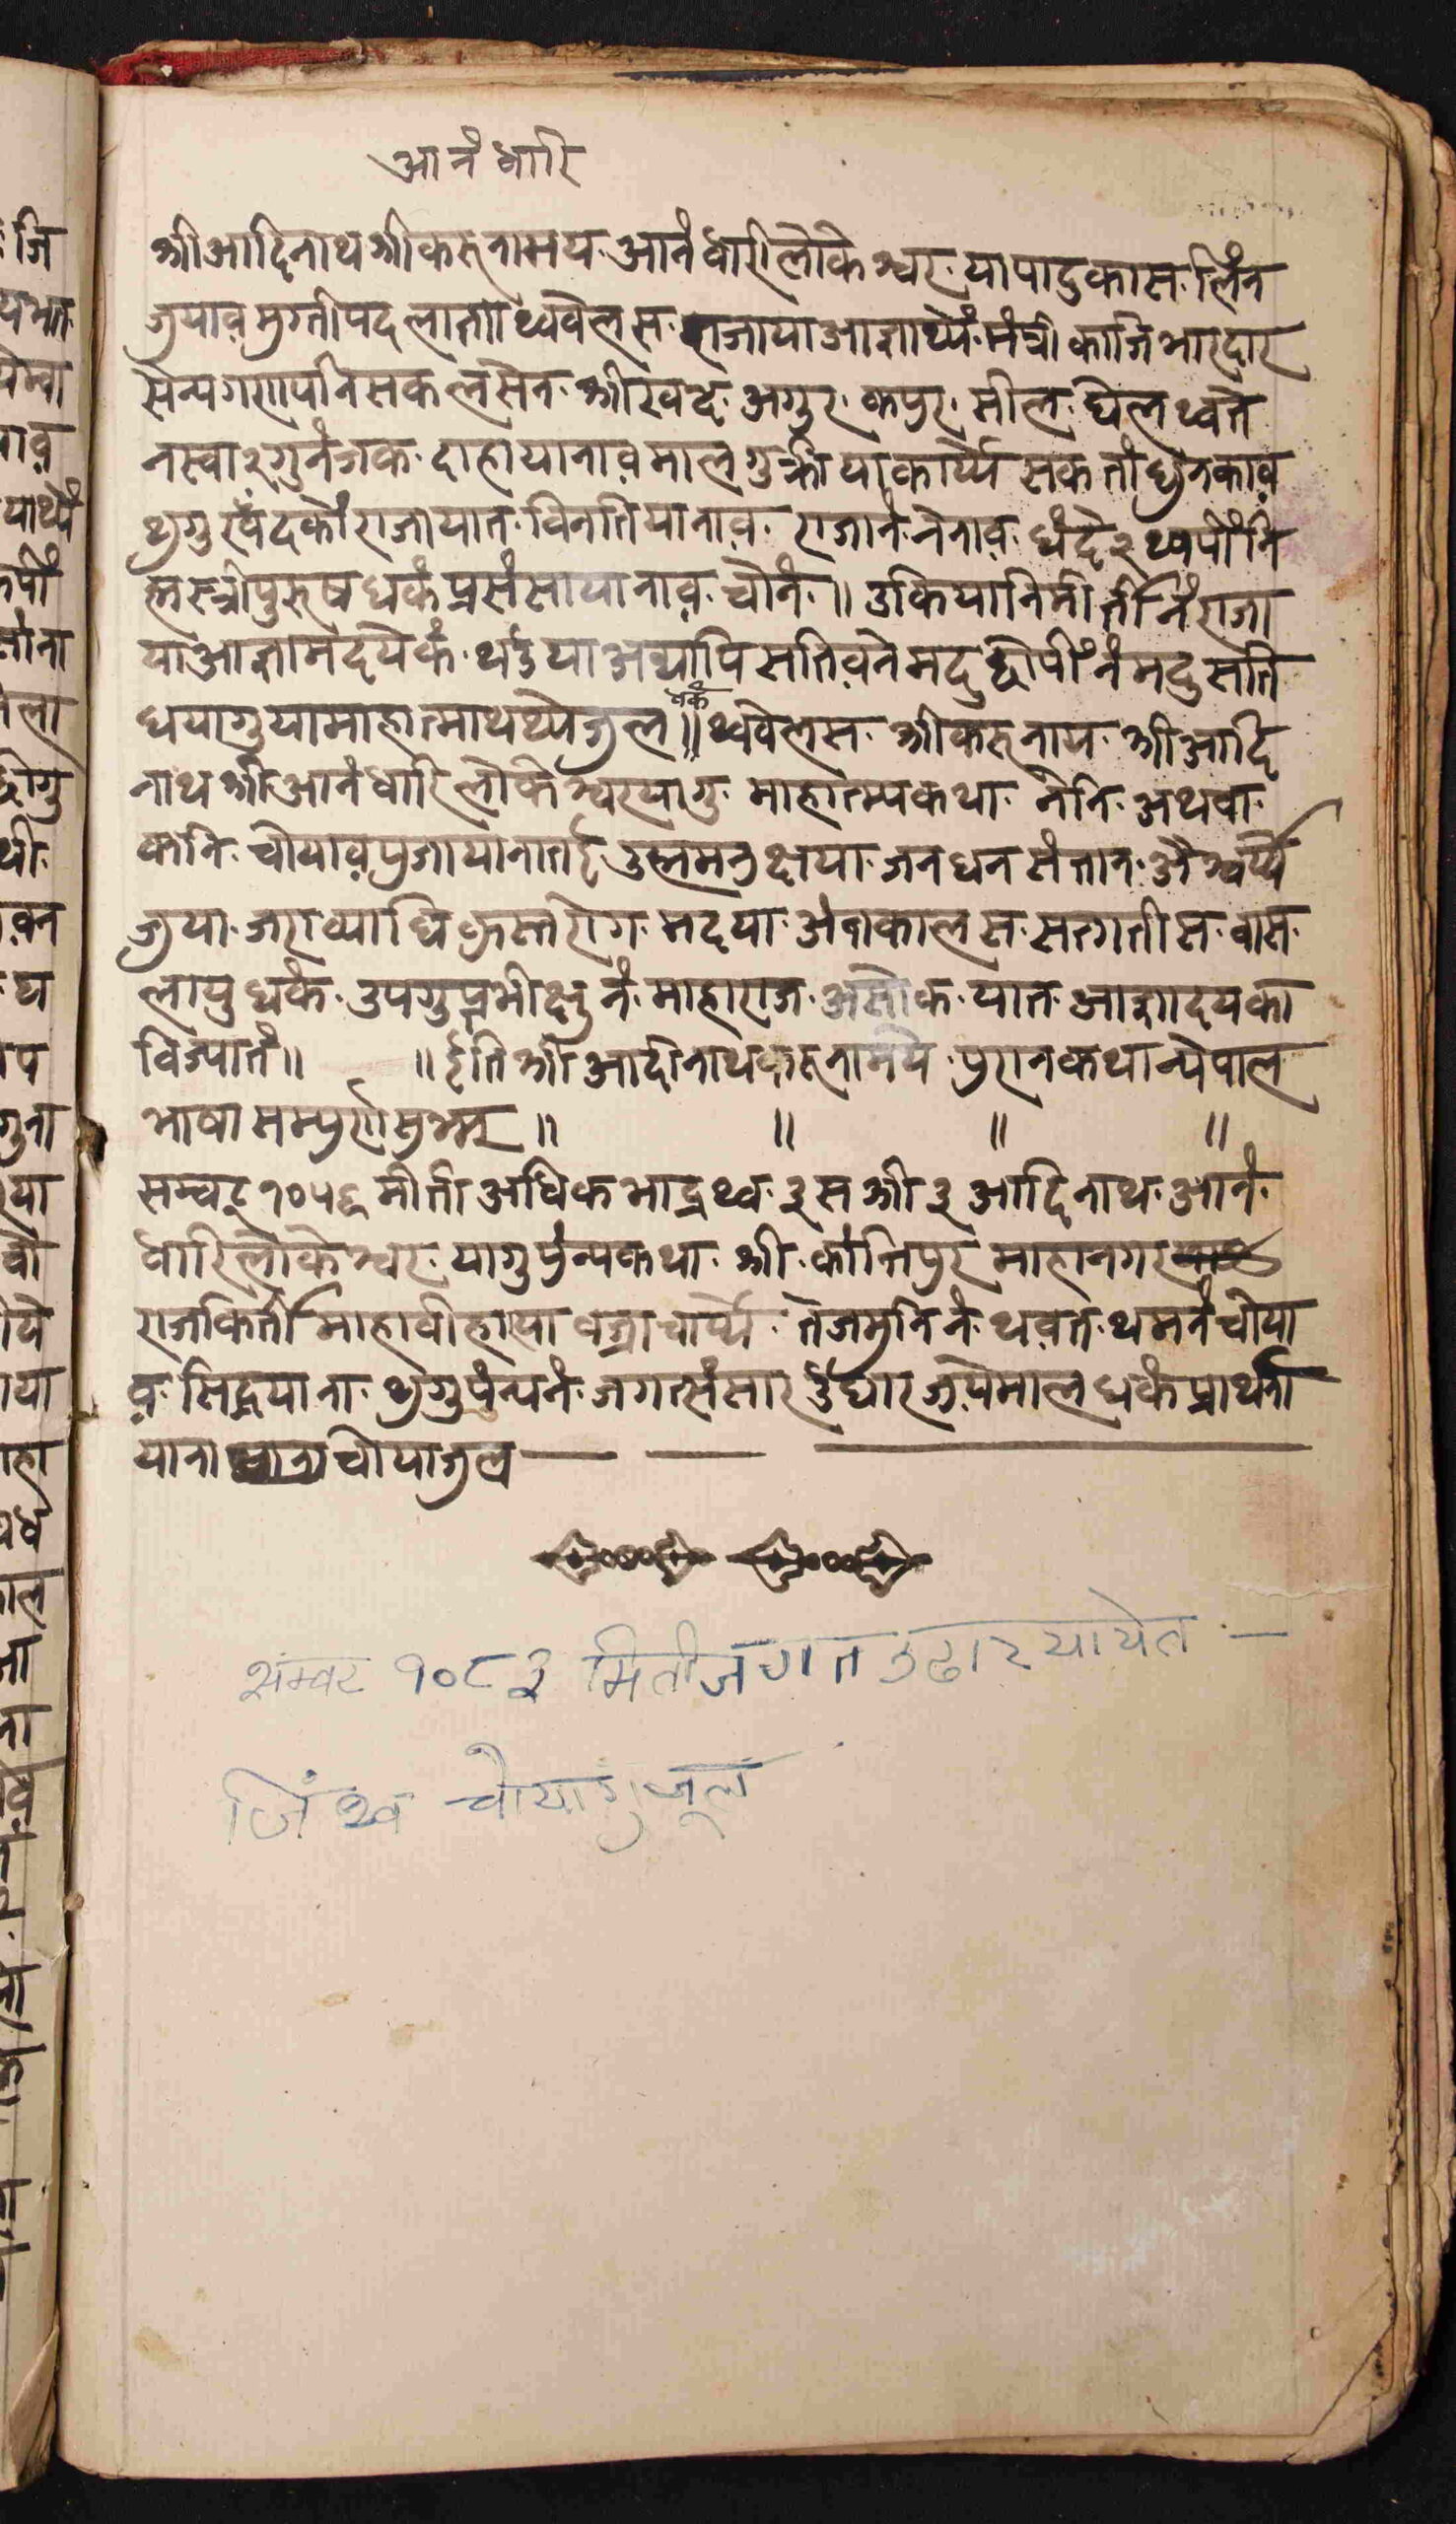 आनंधारि
श्रीआदिनाथ श्रीकरूनामय आनंधारीलोकेश्वर यापादुकास लिंन
जुयाव़ मुग्तीपद लातो॥ थ्ववेलस राजाया आज्ञाथ्यें मंत्री काजि भारदार
सैन्यगणपनि सकलसेन श्रीखंद अगुर कपुर सील घेल थ्वते
थुगु खँ दको राजायात विनतियानाव़ राजानं नेनाव़ धंदे२ थ्वपीं नि
ह्मस्त्रीपुरूष धकं प्रसंसायानाव़ चोनं ॥ उकियानिमीर्तीनं राजा
याआज्ञामदयेकं थउंया अद्यापि सतिव़ने मदु छोपींनं मदु सति
धयागुया माहात्मा थथ्येजुल धकं ॥ थ्ववेलस श्रीकरूनाय श्रीआदि
नाथ श्रीआनंधारिलोकेश्वरयागु माहात्म्यकथा नेनि अथवा
कनि चोयाव़ पुजायानातई उह्ममनुक्षया जनधन संतान अैश्वर्य्य
जुया जराव्याधि कुस्तरोग मदया अंतकालस सत्गतीस वास
लायु धकं उपगुप्तभीक्षुनं माहाराज असोक यात आज्ञादयका
विज्यातं ॥ ॥ ईति श्री आदीनाथकरूनामये पुरानकथा न्येपाल
भाषा सम्पुर्ण सुभम् ॥ ॥ ॥ ॥
सम्वट् १०५६ मीर्ती अधिक भाद्र थ्व ३ स श्री ३ आदिनाथ आनं
धारिलोकेश्वर यागु पुंन्यकथा श्री कांतिपुर माहानगर
राजकिर्ती माहावीहारया वज्राचार्य्य तेजमुनि नं थव़त थमनं चोया
व़ सिद्धयाना थुगु पुंन्यनं जगत्संसार उधार जुयेमाल धकं प्रार्थना
याना चोयाजुल
सम्वट १०८३ मिती जगत उद्धार यायेत —
जिं चोयागु जूल